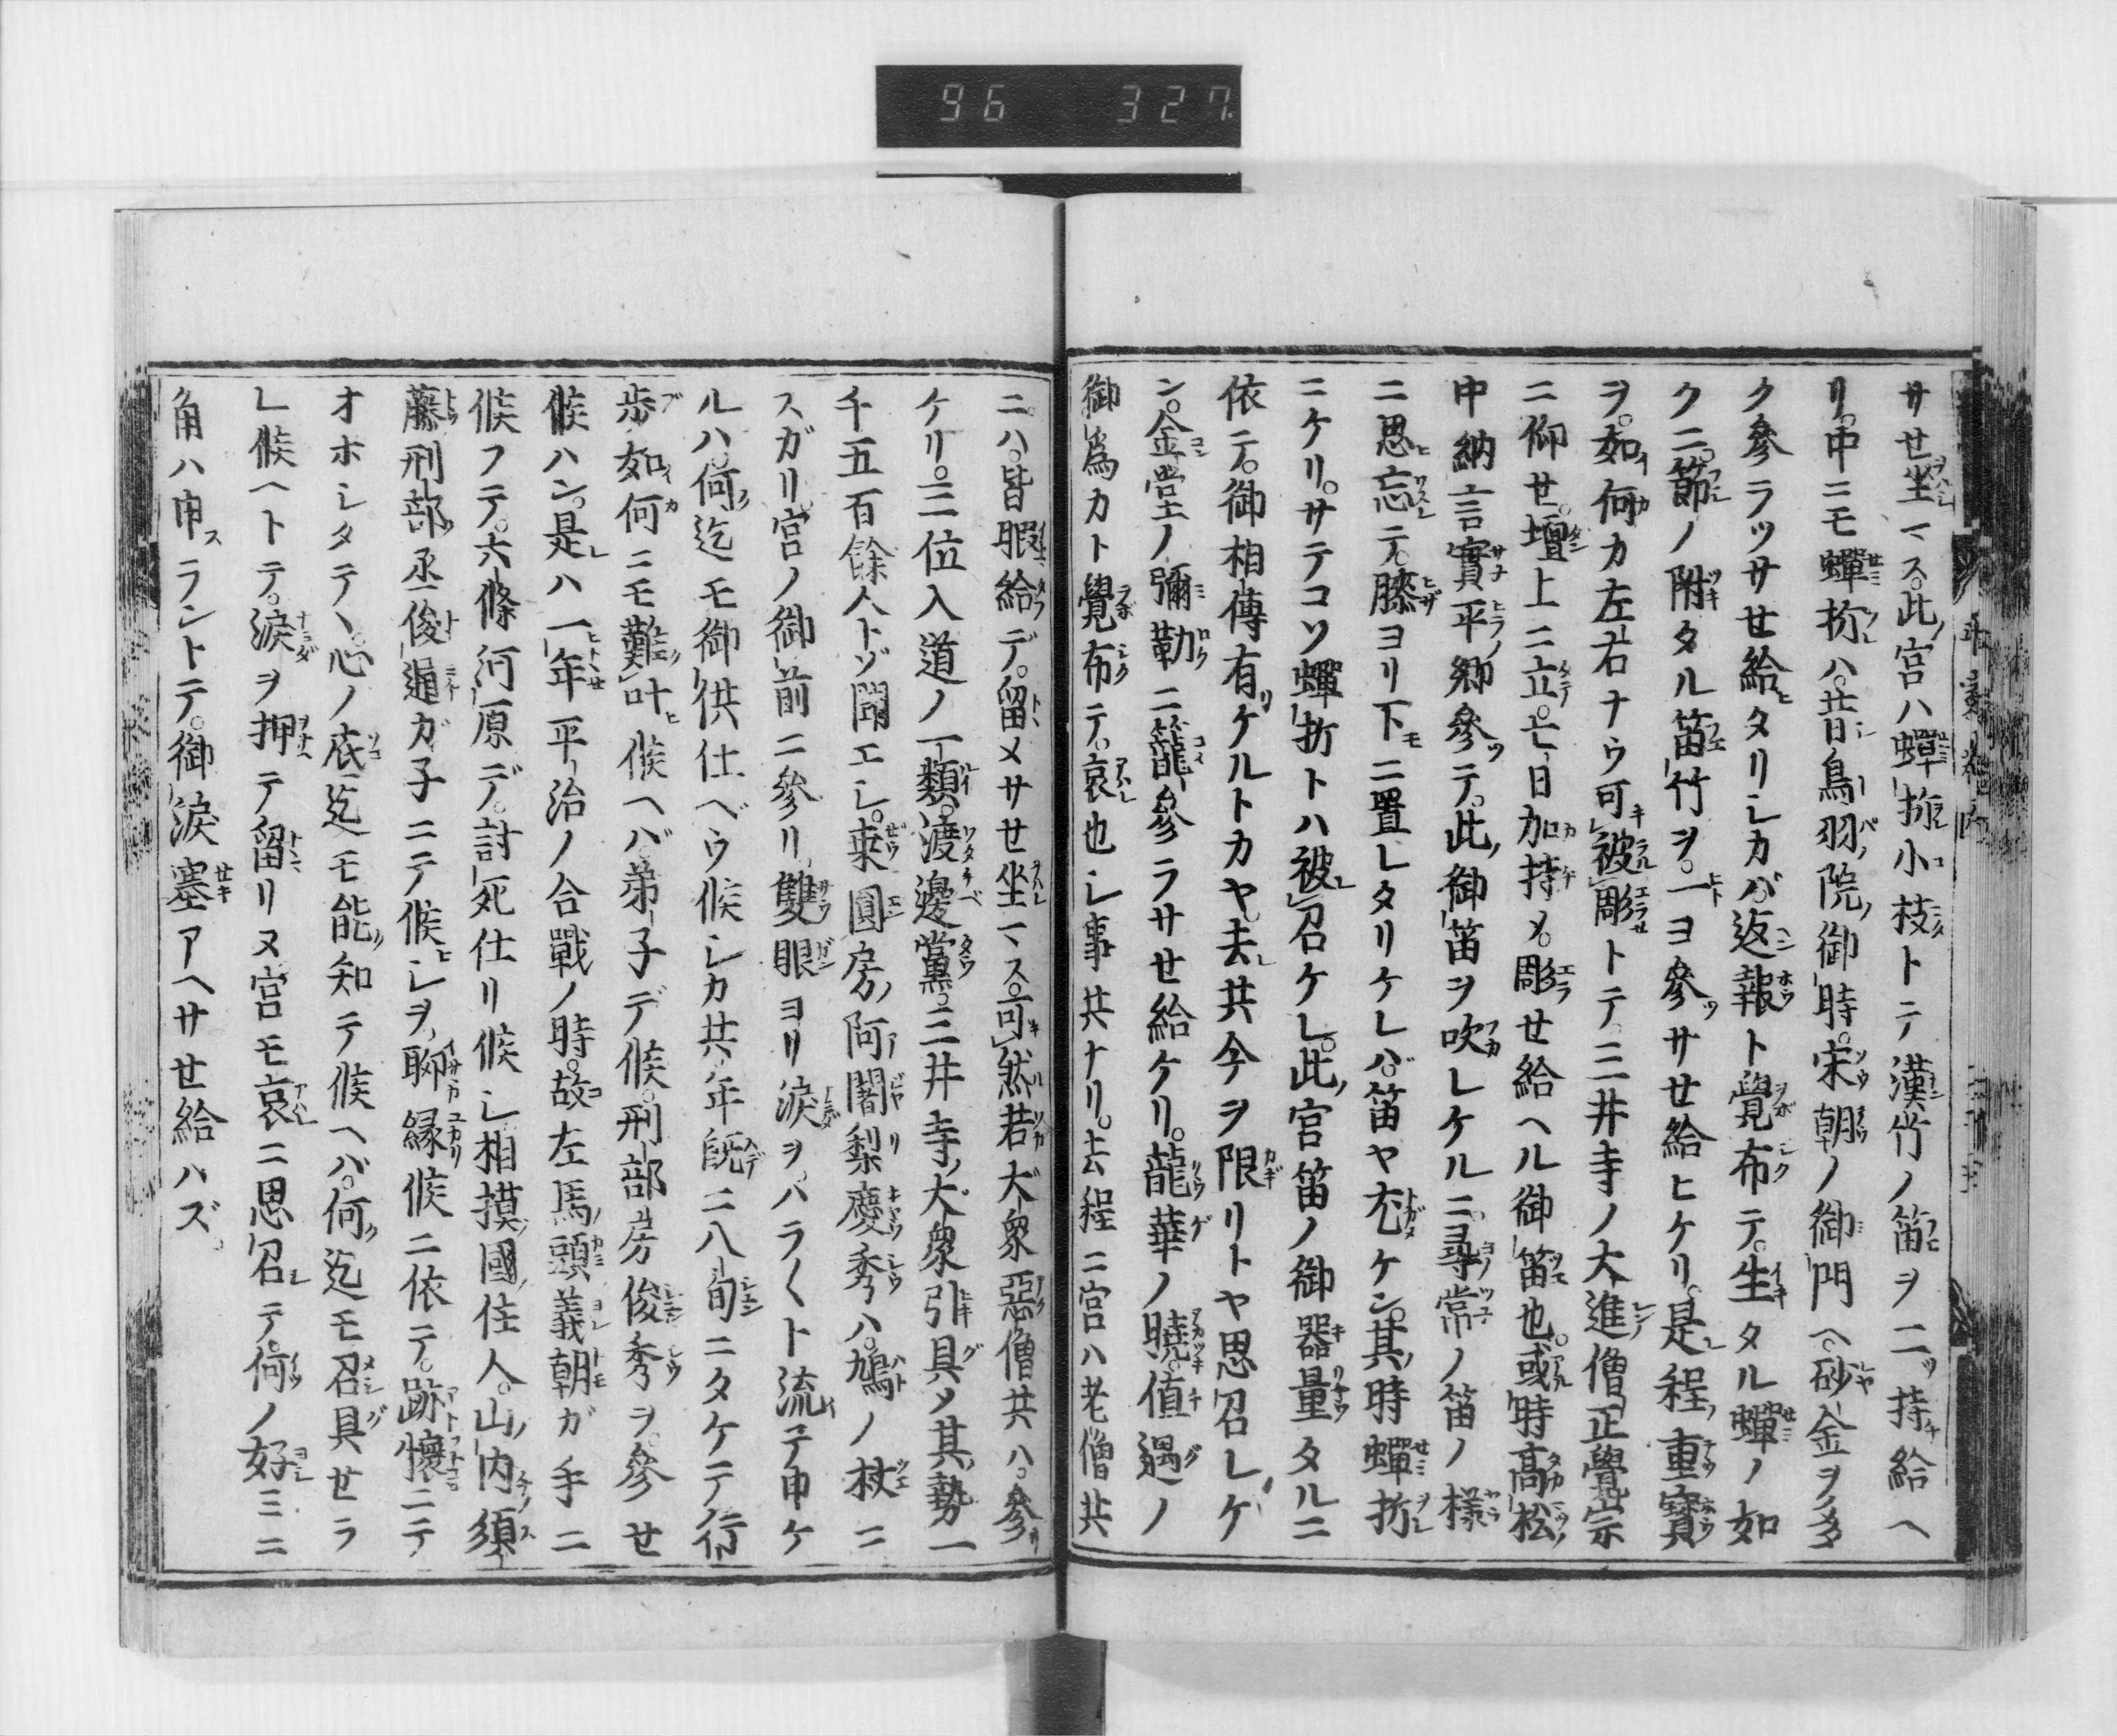 96 327.
サセ坐マス。此ノ宮ハ蟬折小枝トテ漢竹ノ笛ヲ二ツ持給ヘ
リ。中ニモ蟬折ハ。昔シ鳥羽ノ院ノ御時。宋朝ノ御門ヘ。砂金ヲ多
ク參ラッサセ給タリシカバ。返報ト覺布テ。生タル蟬ノ如
クニ。節ノ附タル笛竹ヲ。一ヨ參サセ給ヒケリ。是程ノ重寶
ヲ。如何カ左右ナウ可被彫トテ。三井寺ノ大進僧正覺宗
ニ仰セ。壇上ニ立。七日加持メ。彫セ給ヘル御笛也。或時高松ノ
中納言實平ノ卿參テ。此ノ御笛ヲ吹レケルニ。尋常ノ笛ノ樣
ニ思忘テ。膝ヨリ下ニ置レタリケレバ。笛ヤ尤ケン。其ノ時蟬折
ニケリ。サテコソ蟬折トハ被召ケレ。此ノ宮笛ノ御器量タルニ
依テ。御相傳有ケルトカヤ。去共今ヲ限リトヤ思召レゲ
ン。金堂ノ彌勒ニ籠參ラサセ給ケリ。龍華ノ曉。值遇ノ
御爲カト覺布テ。哀也シ事共ナリ。去程ニ宮ハ老僧共
ニハ。皆暇給デ。留メサセ坐マス。可然若大衆惡僧共ハ。參リ
ケリ。三位入道ノ一類。渡邊黨。三井寺ノ大衆引具メ其ノ勢一
千五百餘人トゾ聞エシ。乗圓房ノ阿闍梨慶秀ハ。鳩ノ杖ニ
スガリ。宮ノ御前ニ參リ。雙眼ヨリ淚ヲ。ハラ〱ト流イテ申ケ
ルハ。何迄モ御供仕ベウ候シカ共。年既ニ八旬ニタケテ行
歩如何ニモ難叶候ヘバ。弟子デ候。刑部房俊秀ヲ。參セ
候ハン。是ハ一年平治ノ合戰ノ時。故左馬頭義朝ガ手ニ
候フテ。六條河原デ。討死仕リ候シ相摸國ノ住人。山ノ内須
藤刑部ノ丞俊通ガ子ニテ候ヒシヲ。聊緣候ニ依テ。跡懷ニテ
オホシタテヽ。心ノ底迄モ能知テ候ヘバ。何迄モ召具セラ
レ候ヘトテ。淚ヲ押テ留リヌ宮モ哀ニ思召テ。何ノ好ミニ
角ハ申スラントテ。御淚塞アヘサセ給ハズ。